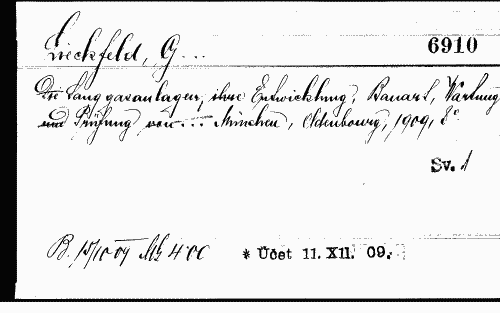 Lieckfeld, G... 6910
Die Sauggasanlagen, ihre Entwicklung, Bauart, Wartung
und Prüfung von... München, Oldenbourg, 1909, 8°
Sv. 1
B. 15/10 09 Mk 4·00 * Účet 11. XII. 09.